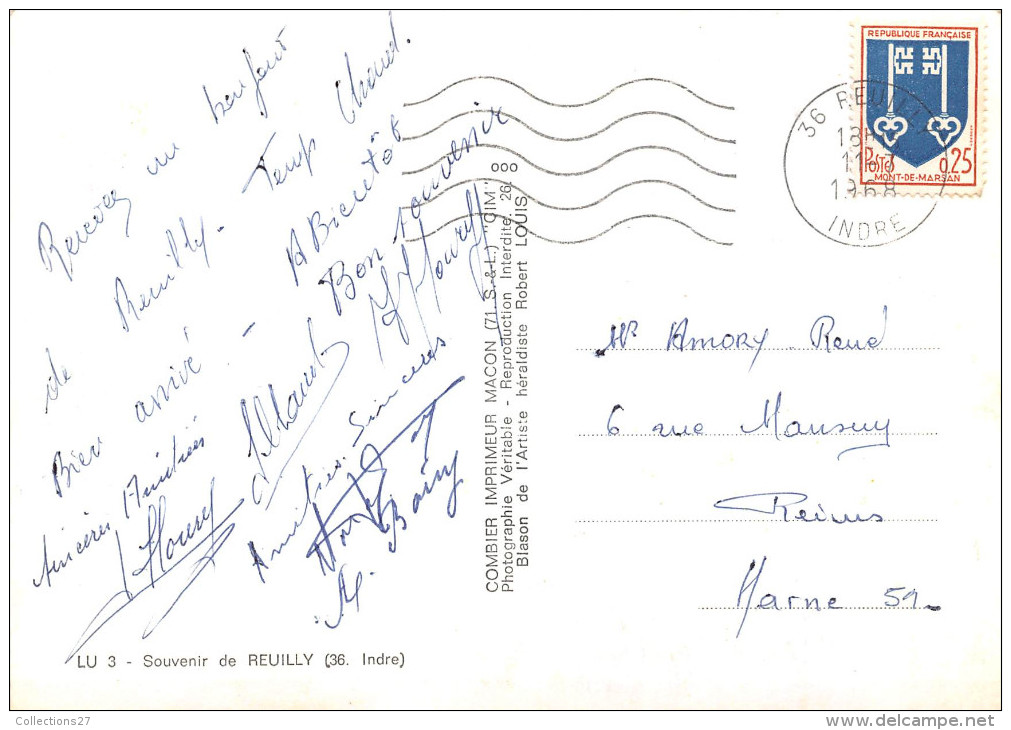 Recevez un bonjour
de Reuilly. Temps Chaud.
Bien arrivé - A Bientôt
Sincères Amitiés Bon
Amities. Sincères
M. Bainy
LU 3 - Souvenir de REUILLY (36. Indre)
COMBIER IMPRIMEUR MACON (71. S.-&-L.) "CIM"
Photographie Véritable - Reproduction Interdite. 26
Blason de l'Artiste héraldiste Robert LOUIS
REPUBLIQUE FRANÇAISE
POSTES 0,25
MONT-DE-MARSAN
36 REUILLY
18H
1968
INDRE
Mr AMORY René
6 rue Mansuy
Reims
Marne 51
Collections27
delcampe.net